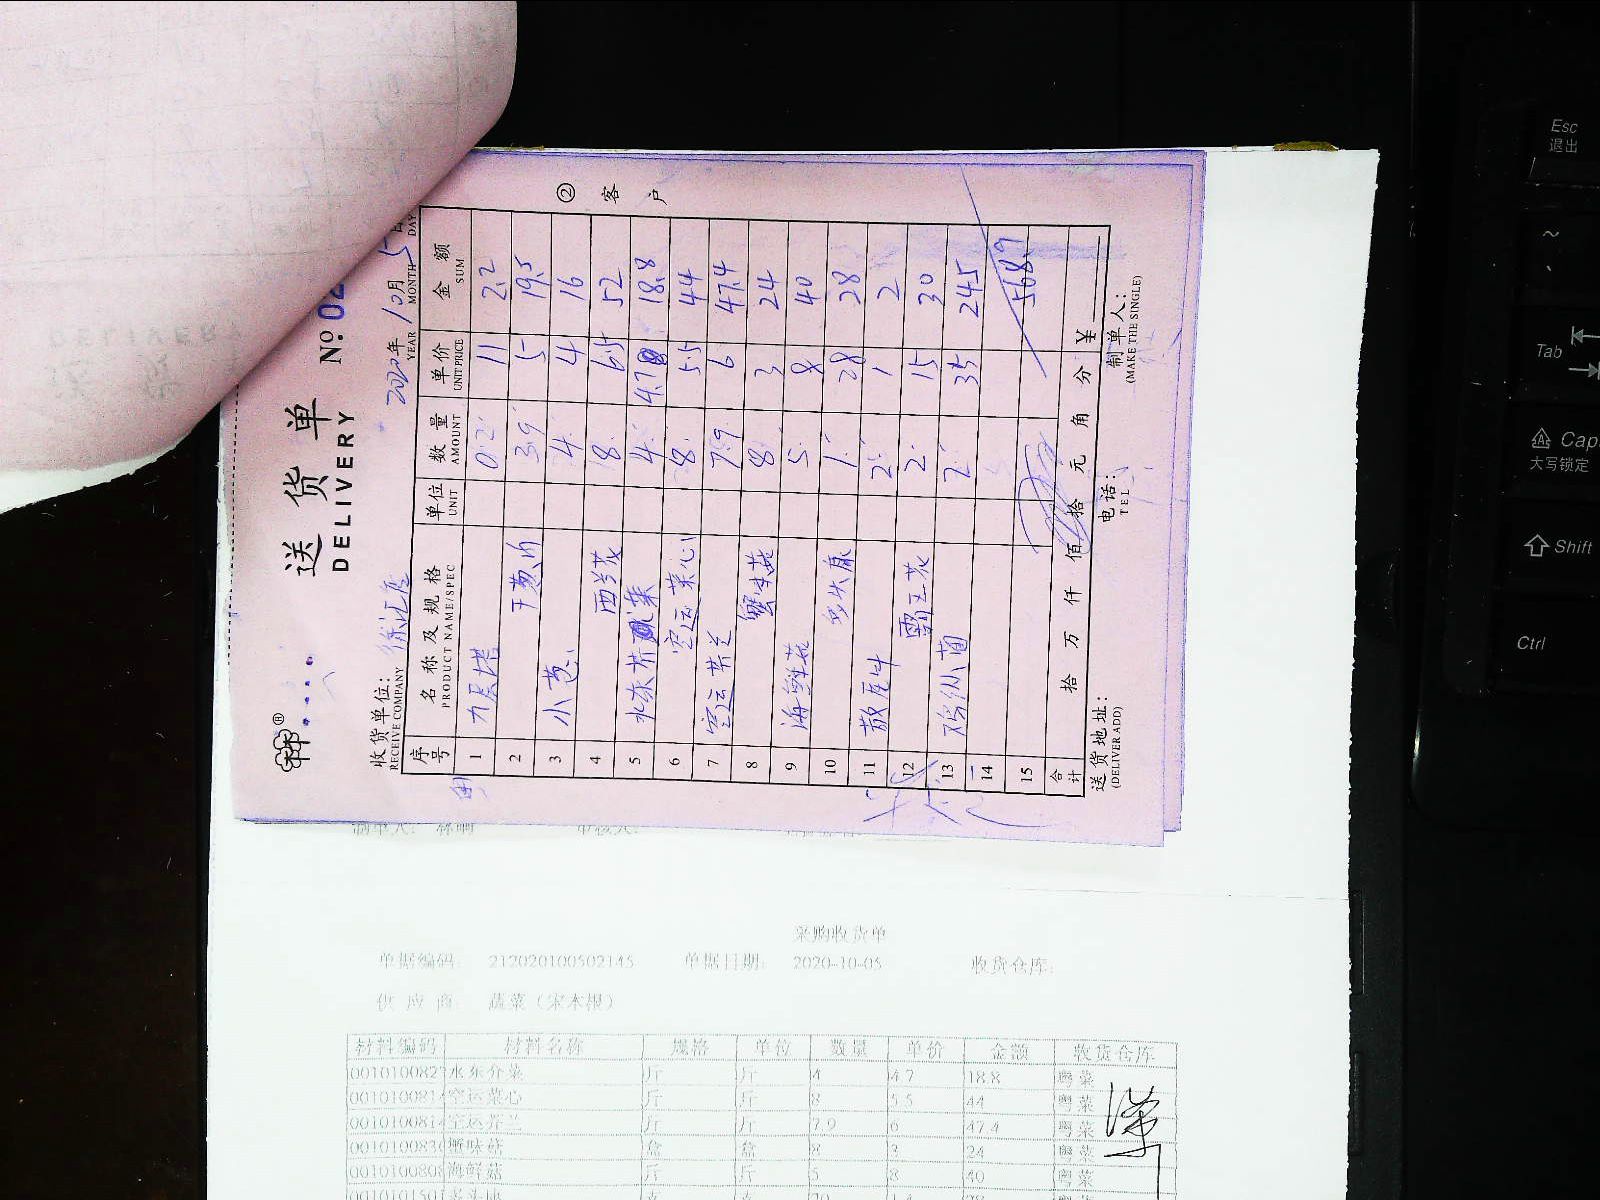 ② 客户
送货单
DELIVERY
№ 02
收货单位: 徐汇店
RECEIVE COMPANY
2020年 10月 5
YEAR MONTH DAY
序号 名称及规格 单位 数量 单价 金额
PRODUCT NAME/SPEC UNIT AMOUNT UNIT PRICE SUM
1 九层塔 0.2 11 2.2
2 干葱肉 3.9 5 19.5
3 小葱 4 4 16
4 西兰花 8 6.5 52
5 水东芥菜 4 4.7 18.8
6 空运菜心 8 5.5 44
7 空运芥兰 7.9 6 47.4
8 蟹味菇 8 3 24
9 海鲜菇 5 8 40
10 老头康 1 28 28
11 2 1 2
12 2 15 30
13 鸡枞菌 7 35 245
14
15 568.9
合计 拾 万 仟 佰 拾 元 角 分 ¥
送货地址:
(DELIVER ADD)
电话:
TEL
制单人:
(MAKE THE SINGLE)
制单人: 林丽
采购收货单
单据编码: 212020100502145 单据日期: 2020-10-05 收货仓库:
供应商: 蔬菜（宋本根）
材料编码 材料名称 规格 单位 数量 单价 金额 收货仓库
001010082 水东介菜 斤 斤 4 4.7 18.8 粤菜
001010081 空运菜心 斤 斤 8 5.5 44 粤菜
001010081 空运芥兰 斤 斤 7.9 6 47.4 粤菜
001010083 蟹味菇 盒 盒 8 3 24 粤菜
001010080 海鲜菇 斤 斤 5 8 40 粤菜
Esc
退出
~
Tab
Cap
大写锁定
Shift
Ctrl